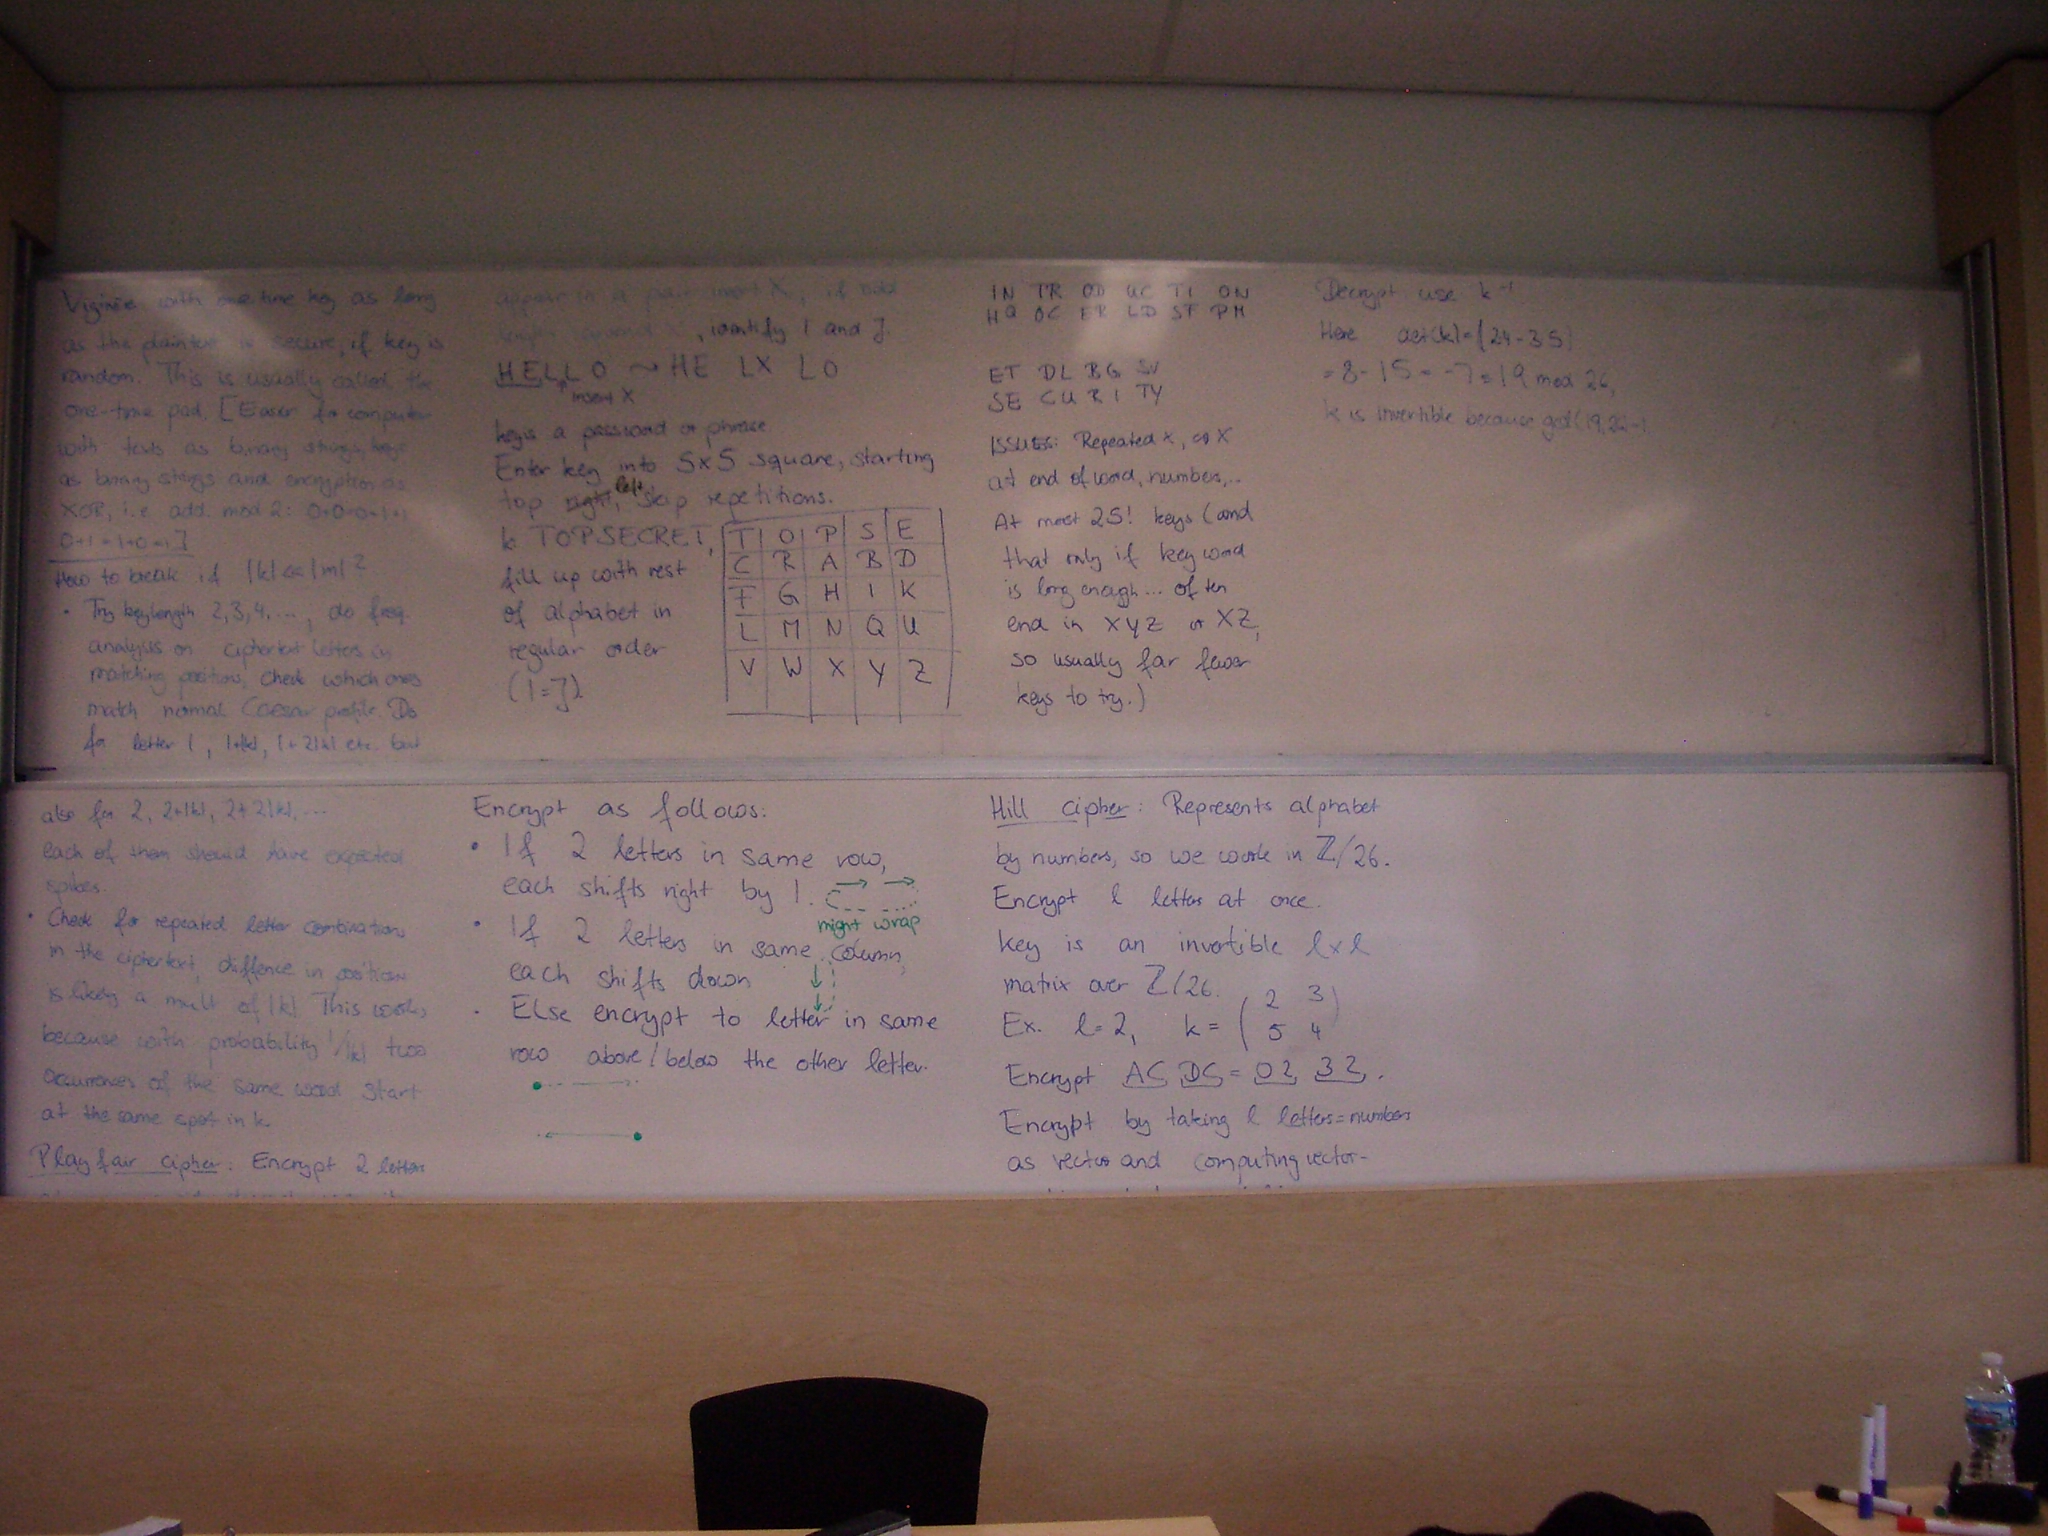 Viginère with one-time key as long
as the plaintext is secure, if key is
random. This is usually called the
one-time pad. [Easier for computer
with texts as binary strings, keys
as binary strings and encryption as
XOR, i.e. add. mod 2: 0+0=0=1+1
0+1=1+0=1]
How to break if |k|<<|m|?
• Try keylength 2,3,4,..., do freq.
analysis on ciphertext letters in
matching positions, check which ones
match normal Caesar profile. Do
for letter 1, 1+|k|, 1+2|k| etc. but
also for 2, 2+|k|, 2+2|k|,...
each of them should have expected
spikes.
• Check for repeated letter combinations
in the ciphertext, diffence in position
is likely a mult of |k|. This works
because with probability 1/|k| two
occurrences of the same word start
at the same spot in k.
Playfair cipher: Encrypt 2 letters
appear in a pair insert X, if odd
, identify I and J.
HELLO ~ HE LX LO
insert X
key is a password or phrase.
Enter key into 5x5 square, starting
top right, left skip repetitions.
k TOPSECRET,
fill up with rest
of alphabet in
regular order
(I=J)
T O P S E
C R A B D
F G H I K
L M N Q U
V W X Y Z
Encrypt as follows:
• If 2 letters in same row,
each shifts right by 1.
might wrap
• If 2 letters in same column,
each shifts down
• Else encrypt to letter in same
row above/below the other letter.
IN TR OD UC TI ON
HQ OC ER LD SF PM
ET DL BG SV
SE CU RI TY
ISSUES: Repeated x, or X
at end of word, numbers,...
At most 25! keys (and
that only if key word
is long enough... often
end in XYZ or XZ,
so usually far fewer
keys to try.)
Hill cipher: Represents alphabet
by numbers, so we work in ℤ/26.
Encrypt l letters at once.
Key is an invertible l×l
matrix over ℤ/26.
Ex. l=2, k = (2 3
5 4)
Encrypt AC DC = 02 32.
Encrypt by taking l letters=numbers
as vector and computing vector-
Decrypt use k⁻¹
Here det(k)=(2·4-3·5)
=8-15=-7≡19 mod 26,
k is invertible because gcd(19,26)=1